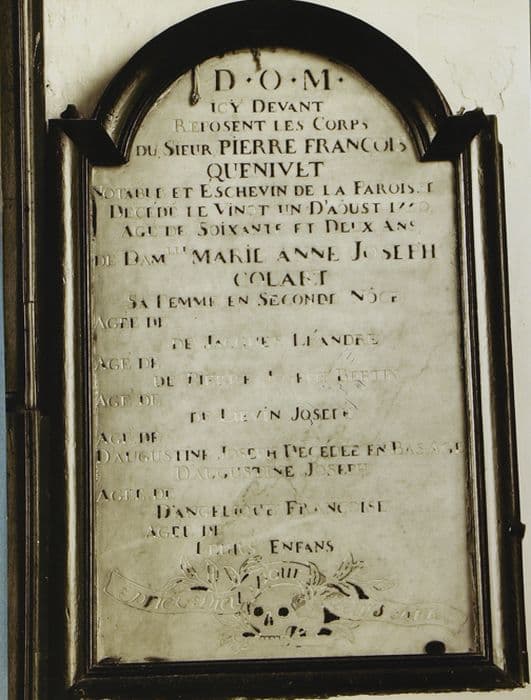 D·O·M·
ICY DEVANT
REPOSENT LES CORPS
DU SIEUR PIERRE FRANÇOIS
QUENIVET
NOTABLE ET ESCHEVIN DE LA PAROISSE
DECEDÉ LE VINGT UN D'AOUST
AGÉ DE SOIXANTE ET DEUX ANS
DE DAM^LLE MARIE ANNE JOSEPH
COLART
SA FEMME EN SECONDE NÔCE
AGEE DE
DE JACQUES LÉANDRE
AGÉ DE
DE PIERRE
AGÉ DE
DE LIEVIN JOSEPH
AGÉ DE
D'AUGUSTINE JOSEPH DECÉDÉE EN BAS AGE
D'AUGUSTINE JOSEPH
AGEE DE
D'ANGELIQUE FRANÇOISE
AGEE DE
LEURS ENFANS
pour